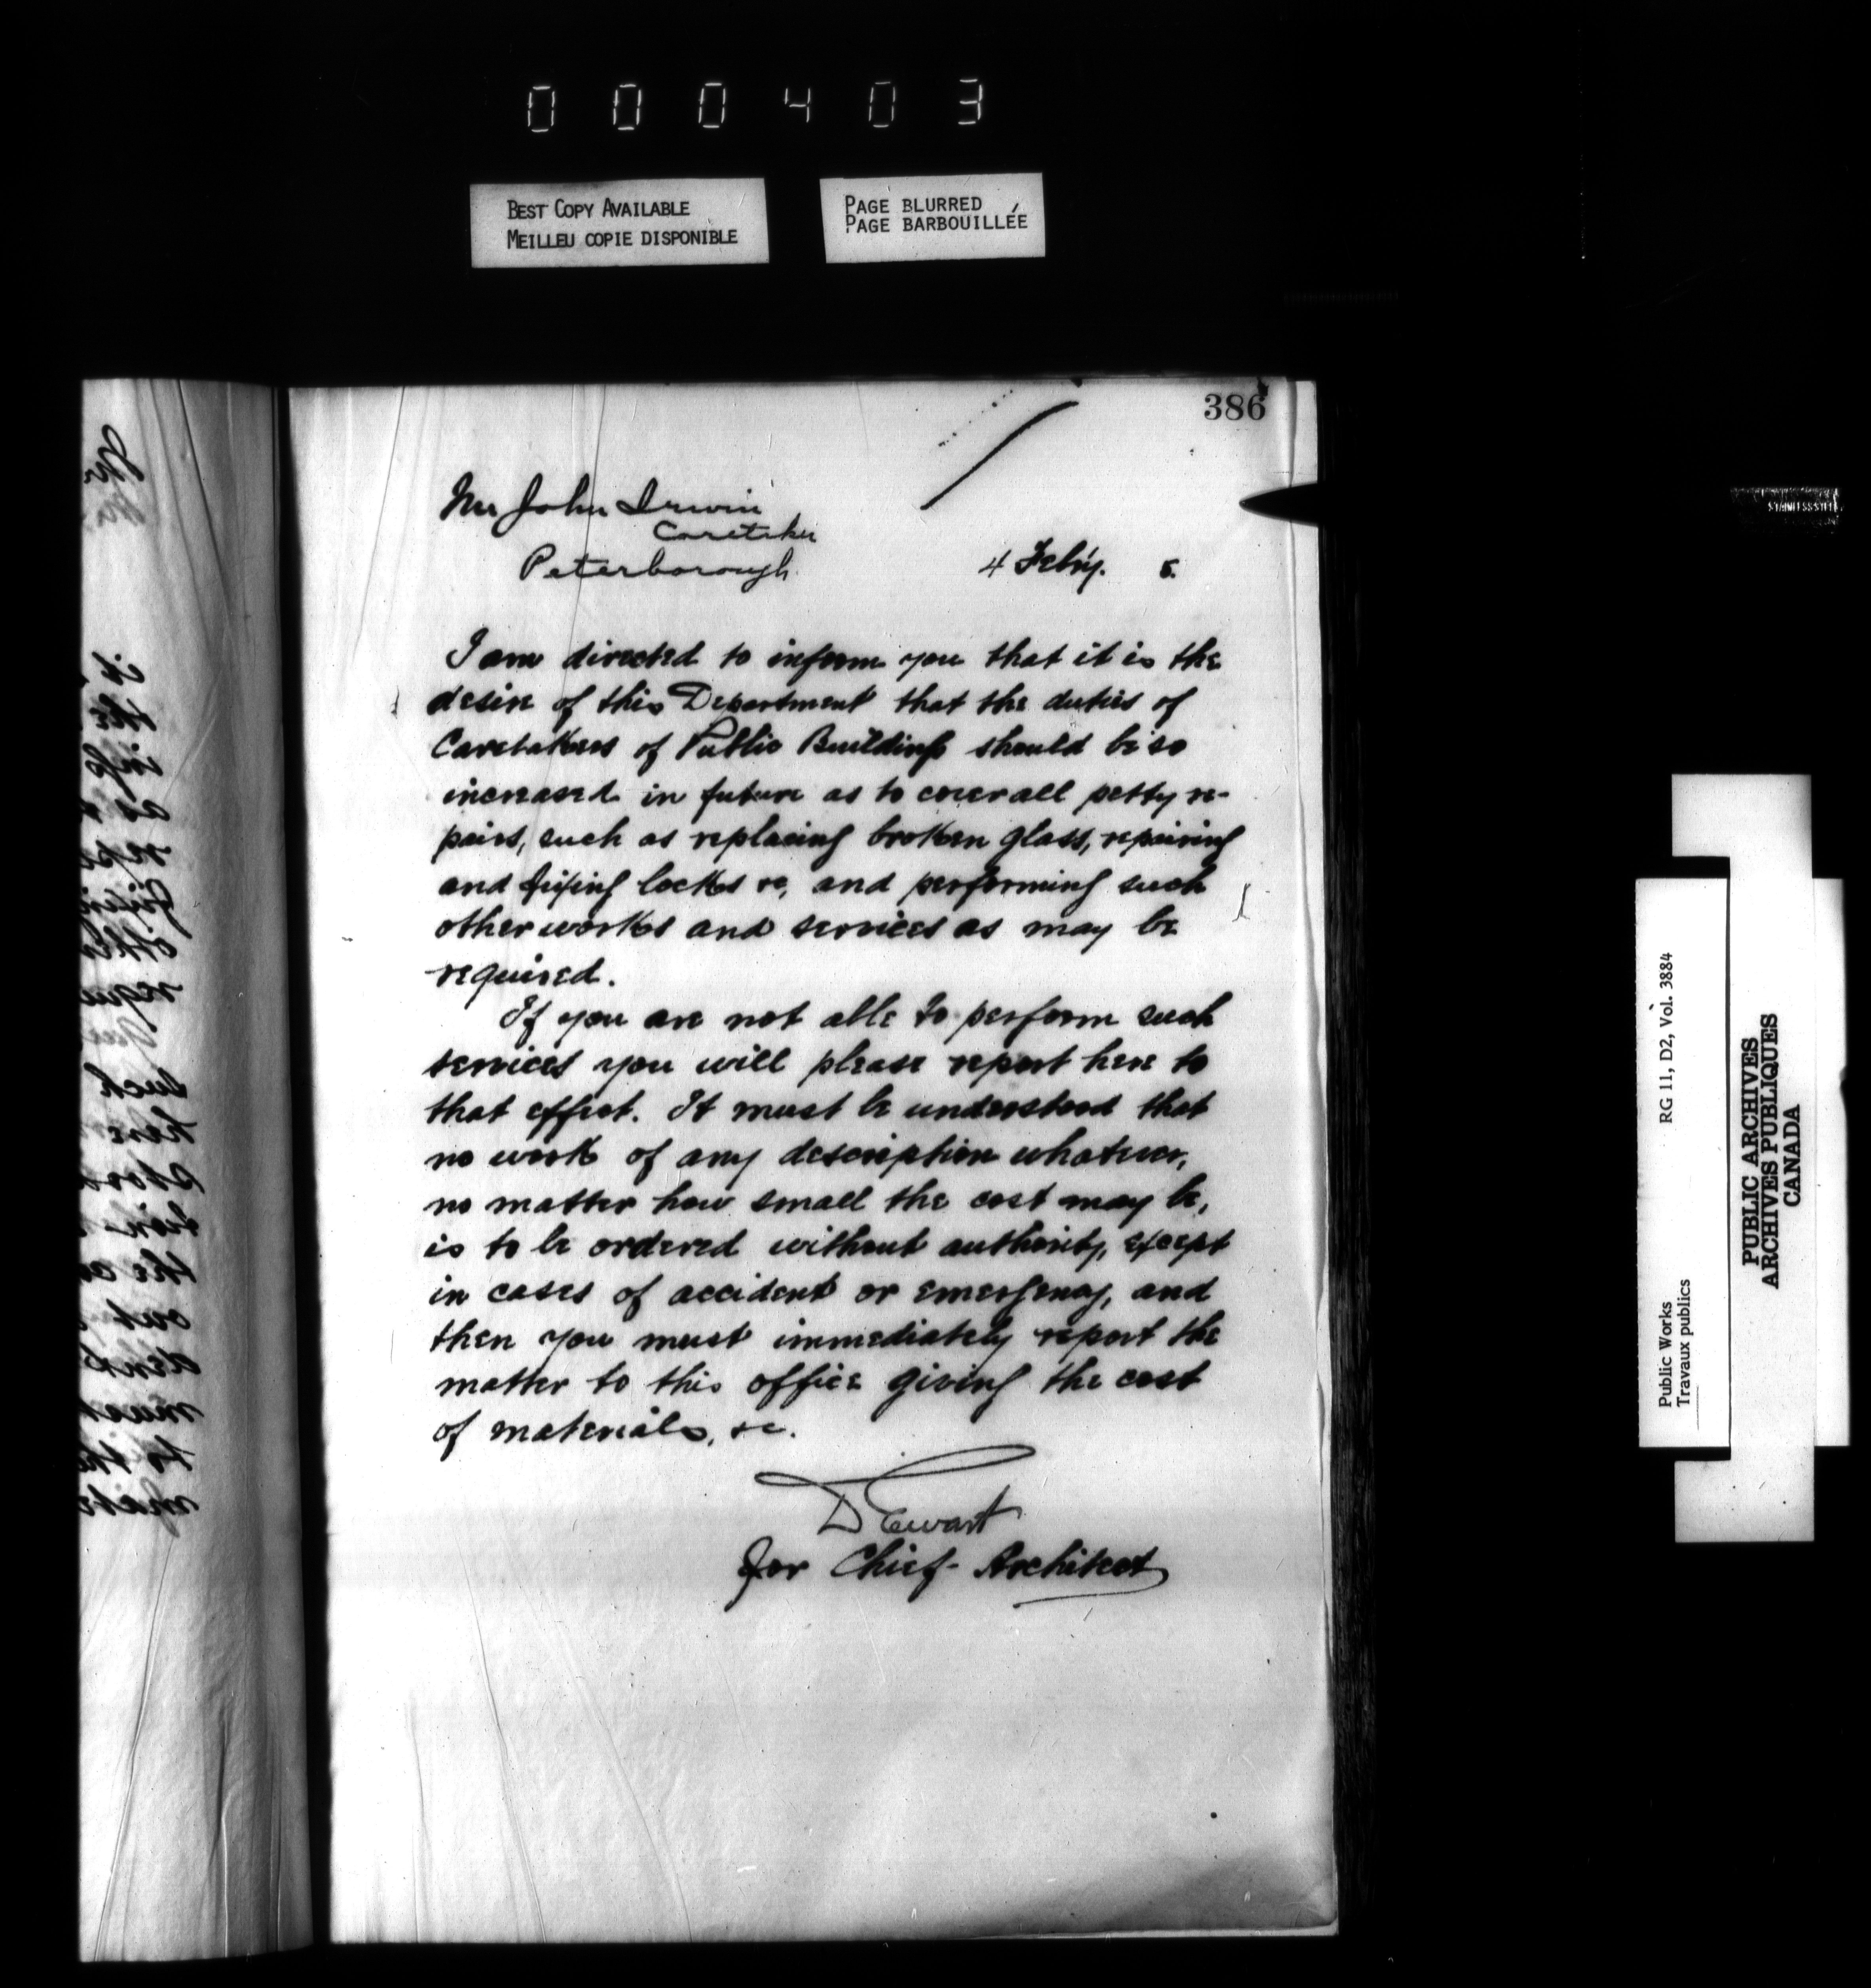 000403
BEST COPY AVAILABLE
MEILLEU COPIE DISPONIBLE
PAGE BLURRED
PAGE BARBOUILLÉE
386
Mr John Irwin
Caretaker
Peterborough.
4 Feb'y. 5.
I am directed to inform you that it is the
desire of this Department that the duties of
Caretakers of Public Buildings should be so
increased in future as to cover all petty re-
pairs, such as replacing broken glass, repairing
and fixing locks &c, and performing such
other works and services as may be
required.
If you are not able to perform such
services you will please report here to
that effect. It must be understood that
no work of any description whatever,
no matter how small the cost may be,
is to be ordered without authority, except
in cases of accident or emergency, and
then you must immediately report the
matter to this office giving the cost
of materials, &c.
D Ewart
for Chief Architect
STAINLESS STEEL
Public Works
Travaux publics
RG 11, D2, Vol. 3884
PUBLIC ARCHIVES
ARCHIVES PUBLIQUES
CANADA